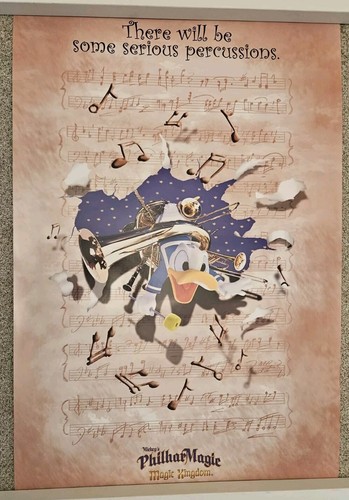 There will be
some serious percussions.
Mickey's
PhilharMagic
Magic Kingdom.